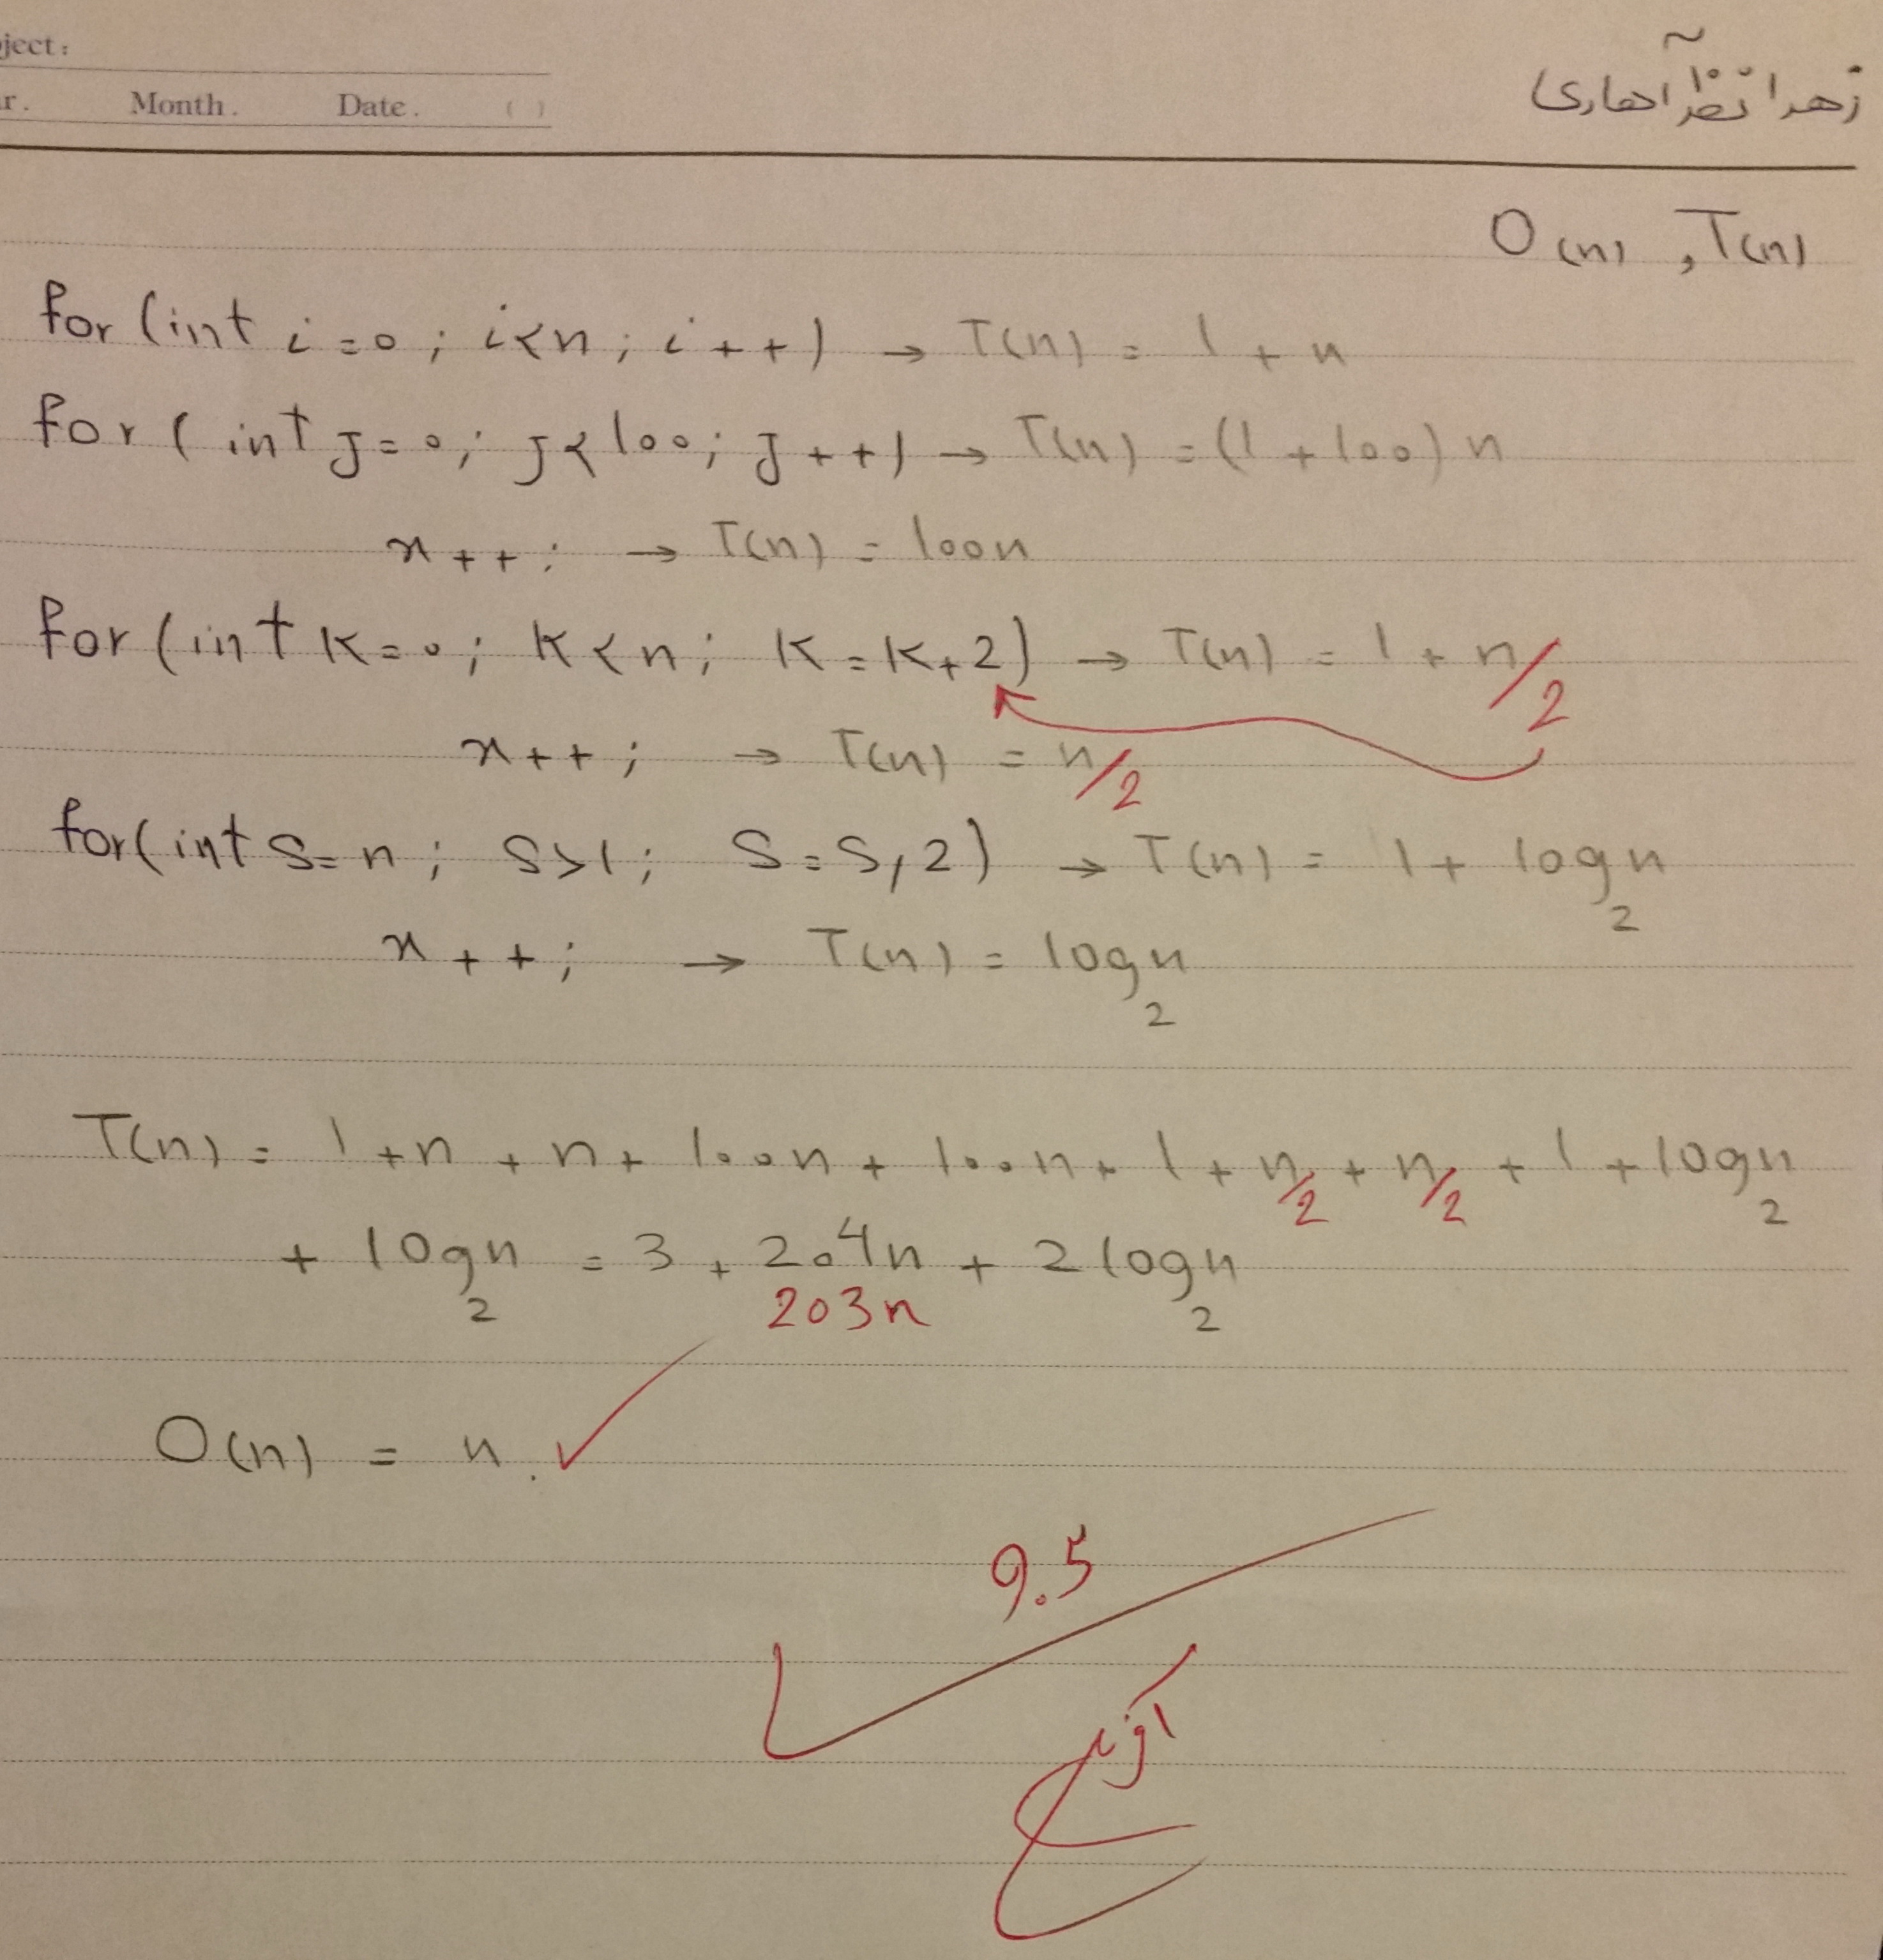 ject:
r. Month. Date. ( )
O(n), T(n)
for (int i=0; i<n; i++) → T(n) = 1+n
for (int J=0; J<100; J++) → T(n) = (1+100)n
x++; → T(n) = 100n
for (int K=0; K<n; K=K+2) → T(n) = 1+n/2
x++; → T(n) = n/2
for(int S=n; S>1; S=S/2) → T(n) = 1+ log₂n
x++; → T(n) = log₂n
T(n) = 1+n+n+100n+100n+1+n/2+n/2+1+log₂n
+ log₂n = 3+204n+2log₂n
203n
O(n) = n.
9.5